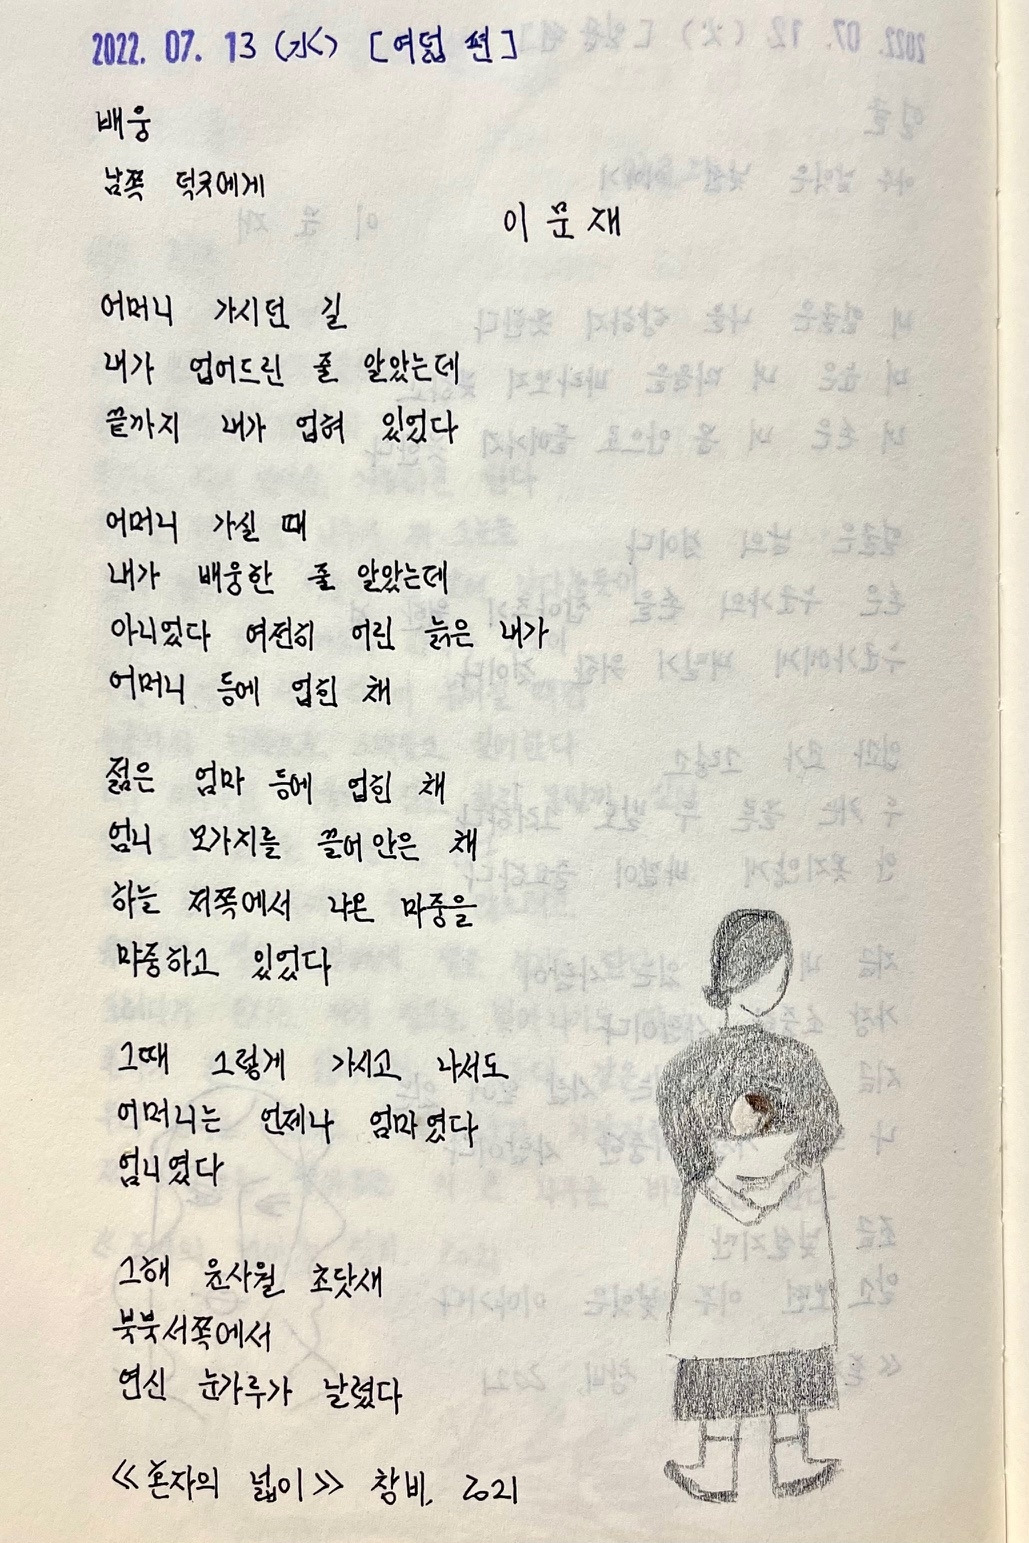 2022. 07. 13 (水) [여덟 편]
배웅
남쪽 덕자에게
이문재
어머니 가시던 길
내가 업어드린 줄 알았는데
끝까지 내가 업혀 있었다
어머니 가실 때
내가 배웅한 줄 알았는데
아니었다 여전히 어린 늙은 내가
어머니 등에 업힌 채
젊은 엄마 등에 업힌 채
엄니 모가지를 끌어안은 채
하늘 저쪽에서 나온 마중을
마중하고 있었다
그때 그렇게 가시고 나서도
어머니는 언제나 엄마였다
엄니였다
그해 윤사월 초닷새
북북서쪽에서
연신 눈가루가 날렸다
≪혼자의 넓이≫ 창비, 2021